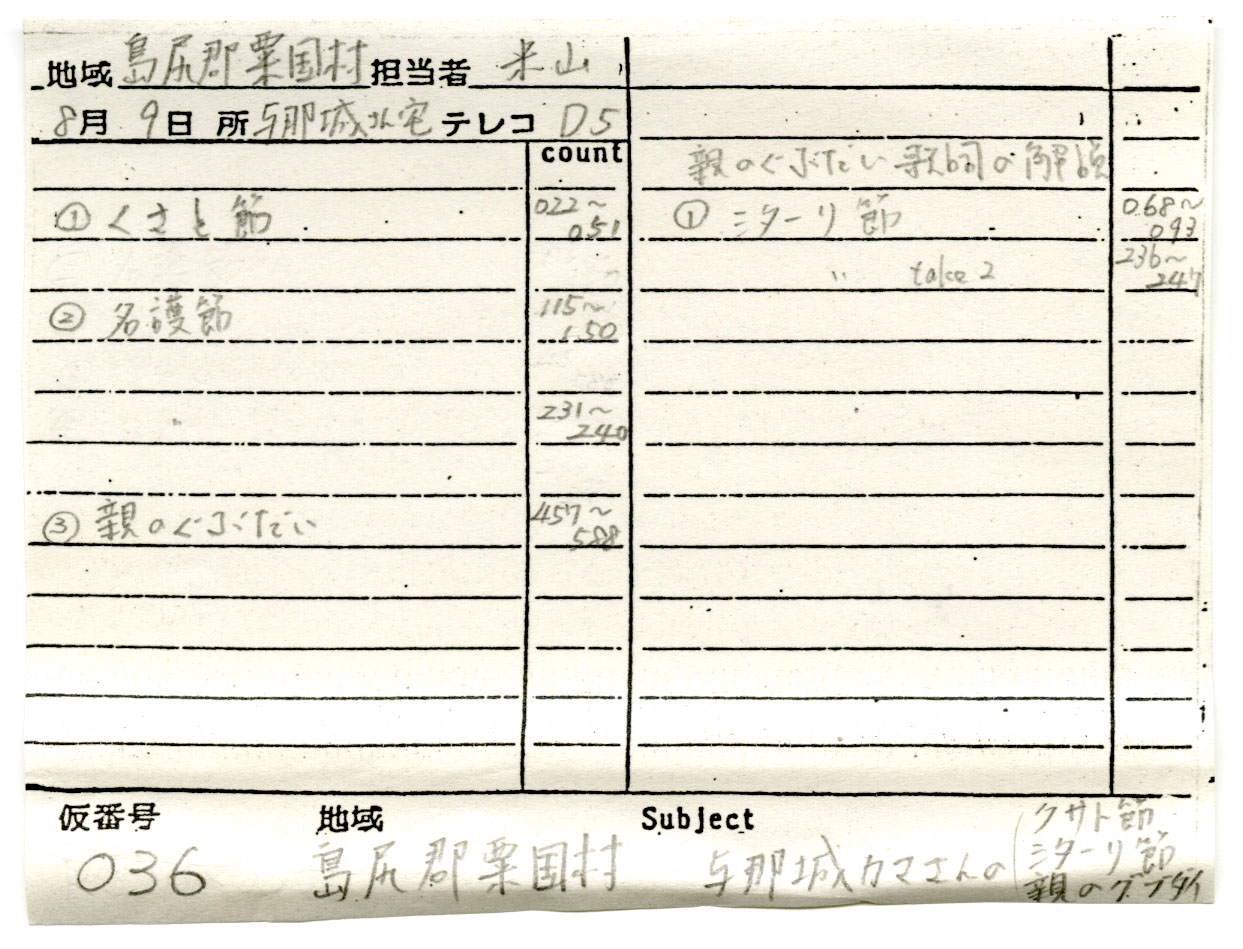 地域 島尻郡粟国村 担当者 米山
8月 9日 所 与那城さん宅 テレコ D5
count
① くさと節 022〜051
② 名護節 115〜150
〃 231〜240
③ 親のぐぶだい 457〜588
親のぐぶだい 歌詞の解説
① ミターリ節 068〜093
〃 take 2 236〜247
仮番号 地域 Subject
036 島尻郡粟国村 与那城カマさんの
クサト節
ミターリ節
親のグブダイ